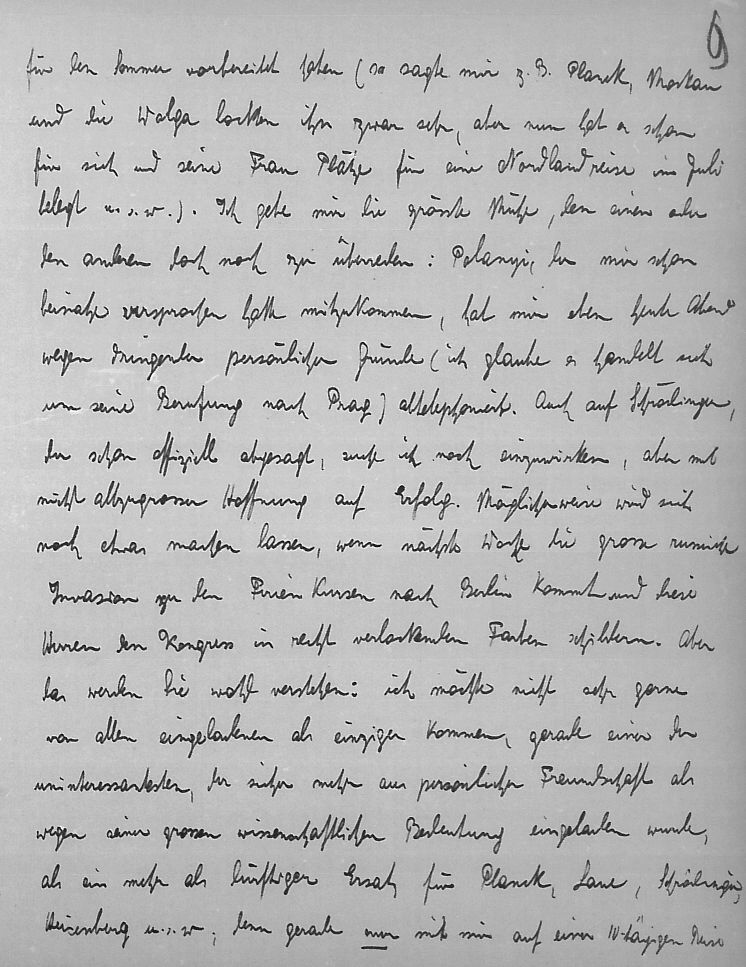 9
für den Sommer vorbereitet haben (so sagte mir z. B. Planck, Moskau
und die Wolga locken ihn zwar sehr, aber nun hat er schon
für sich und seine Frau Plätze für eine Nordlandreise im Juli
belegt u.s.w.). Ich gebe mir die grösste Mühe, den einen oder
den anderen doch noch zu überreden: Polanyi, der mir schon
beinahe versprochen hatte mitzukommen, hat mir eben heute Abend
wegen dringender persönlicher Gründe (ich glaube es handelt sich
um seine Berufung nach Prag) abtelephoniert. Auch auf Schrödinger,
der schon offiziell abgesagt, suche ich noch einzuwirken, aber mit
nicht allzugrosser Hoffnung auf Erfolg. Möglicherweise wird sich
noch etwas machen lassen, wenn nächste Woche die grosse russische
Invasion zu den Ferien Kursen nach Berlin kommt und diese
Herren den Kongress in recht verlockenden Farben schildern. Aber
das werden Sie wohl verstehen: ich möchte nicht sehr gerne
von allen eingeladenen als einziger kommen, gerade einer der
uninteressantesten, der sicher mehr aus persönlicher Freundschaft als
wegen seiner grossen wissenschaftlichen Bedeutung eingeladen wurde,
als ein mehr als dürftiger Ersatz für Planck, Laue, Schrödinger,
Heisenberg u.s.w; denn gerade nur mit mir auf einer 10-tägigen Reise